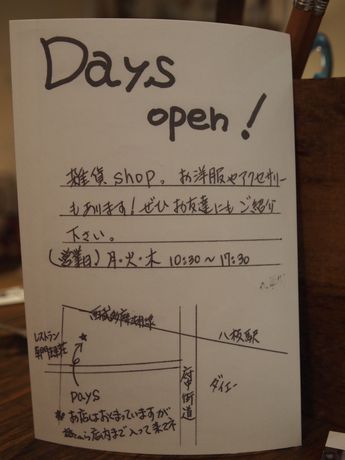 Days
open!
雑貨 shop。お洋服やアクセサリー
もあります！ぜひお友達にもご紹介
下さい。
(営業日) 月・火・木 10:30～17:30
西武多摩湖線
八坂駅
レストラン
府中街道
ダイエー
Days
お店はおくまっていますが
店内まで入って来て